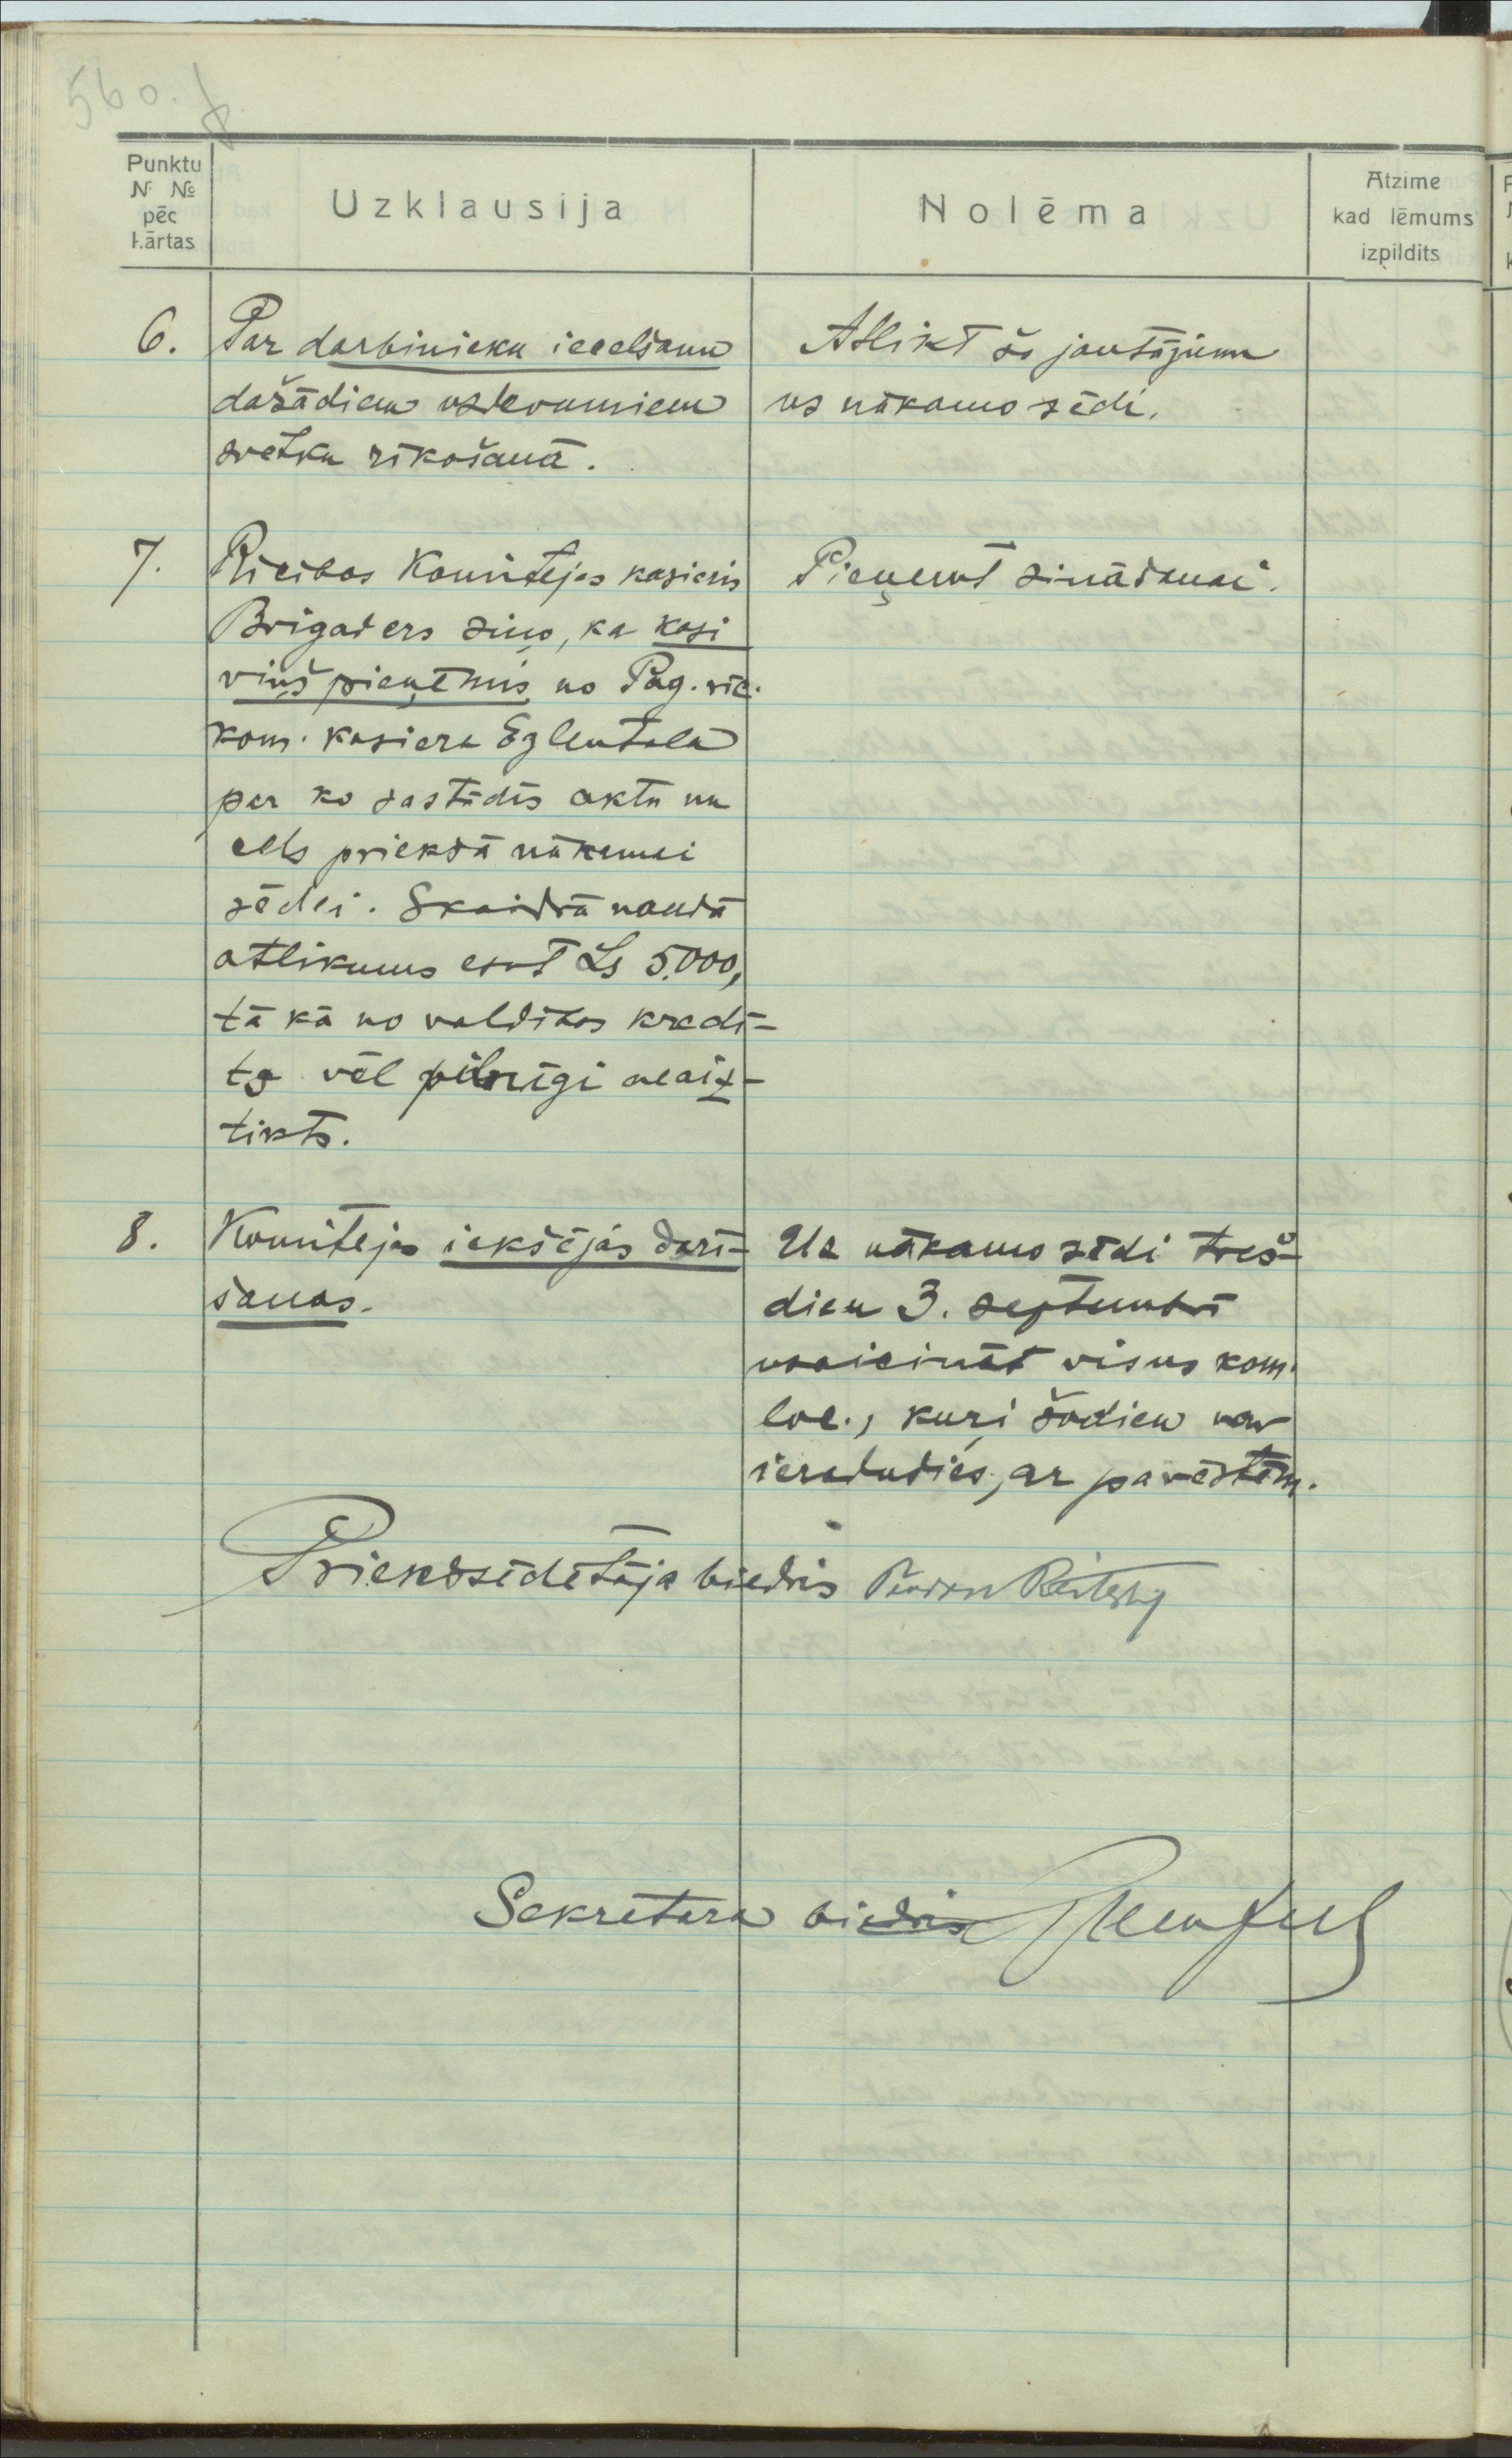 560.
Punktu
N. №
pēc
kārtas
Uzklausija
Nolēma
Atzime
kad lēmums
izpildits
6.
Par darbinieku iecelšanu
dažādiem uzdevumiem
svētku rīkošanā.
Atlikt šo jautājumu
us nākamo sēdi.
7.
Rīcibas Komitejas kasieris
Brigaders ziņo, ka kasi
viņš pieņēmis no Pag. rīc.
kom. kasiera Eglentala
par ko sastādīs aktu un
cels priekšā nākamai
sēdei. Skaidrā naudā
atlikums esot Ls 5.000,
tā kā no valdības kredi-
ts vēl pilnīgi neaiz-
tikts.
Pieņemt zināšanai.
8.
Komitejas iekšējās dari-
šanas.
Uz nākamo sēdi treš-
dien 3. septembrī
uzaicināt visus kom.
loc., kuŗi šodien nav
ieradušies, ar pavēstēm.
Priekšsēdētāja biedris
Sekretara biedris